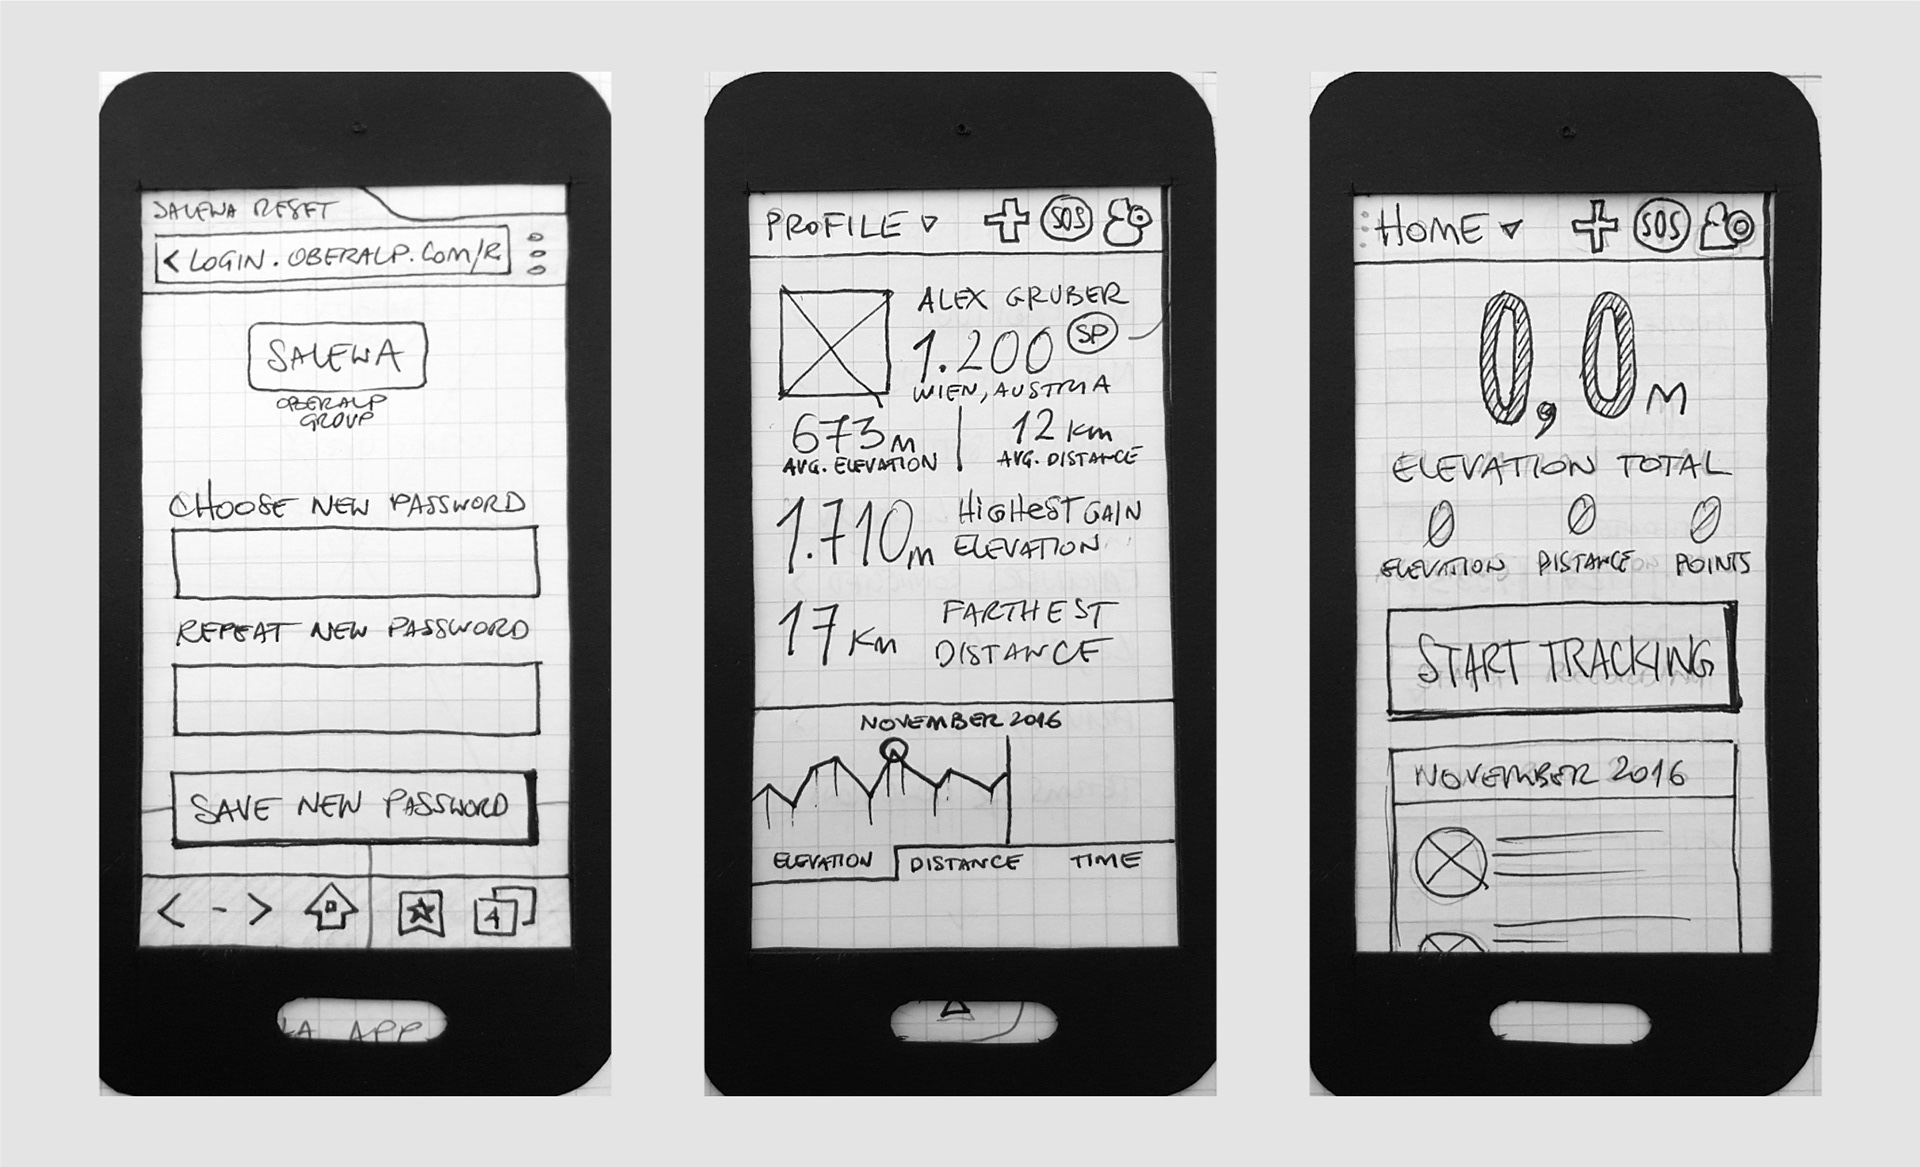 SALEWA RESET
< LOGIN.OBERALP.COM/R
SALEWA
OBERALP
GROUP
CHOOSE NEW PASSWORD
REPEAT NEW PASSWORD
SAVE NEW PASSWORD
4
LA APP
PROFILE
SOS
ALEX GRUBER
1.200 SP
WIEN, AUSTRIA
673m 12 km
AVG. ELEVATION AVG. DISTANCE
1.710m HIGHEST GAIN
ELEVATION
17 km FARTHEST
DISTANCE
NOVEMBER 2016
ELEVATION DISTANCE TIME
HOME
SOS
0,0 M
ELEVATION TOTAL
0 0 0
ELEVATION DISTANCE POINTS
START TRACKING
NOVEMBER 2016